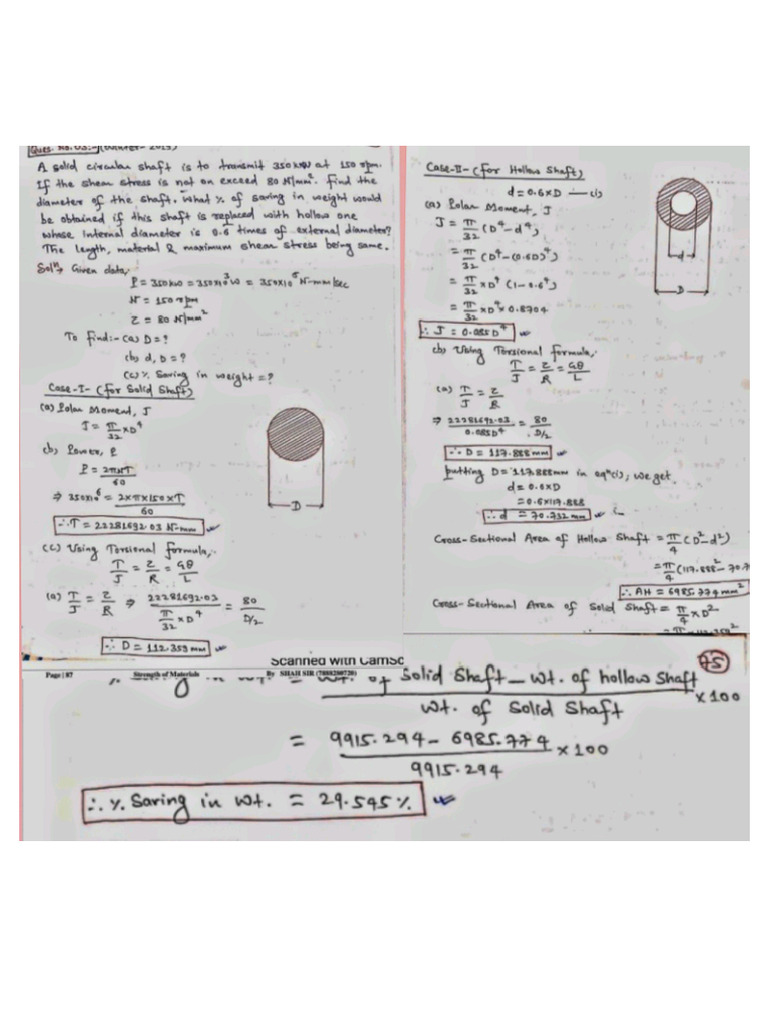 Ques. No. 03:- (Winter- 2015)
A solid circular shaft is to transmit 350 kW at 150 rpm.
If the shear stress is not an exceed 80 N/mm². find the
diameter of the shaft. What % of saving in weight would
be obtained if this shaft is replaced with hollow one
whose internal diameter is 0.6 times of external diameter?
The length, material & maximum shear stress being same.
Solⁿ→ Given data,
P = 350kW = 350x10³W = 350x10⁶ N-mm/sec
N = 150 rpm
τ = 80 N/mm²
To find:- (a) D = ?
(b) d, D = ?
(c) % Saving in weight = ?
Case-I- (for Solid Shaft)
(a) Polar Moment, J
J = π/32 x D⁴
(b) Power, P
P = 2πNT/60
⇒ 350x10⁶ = 2xπx150xT/60
∴ T = 22281692.03 N-mm
(c) Using Torsional formula,
T/J = τ/R = Gθ/L
(a) T/J = τ/R ⇒ 22281692.03/(π/32 x D⁴) = 80/(D/2)
∴ D = 112.359 mm
Case-II- (for Hollow Shaft)
d = 0.6xD — (i)
(a) Polar Moment, J
J = π/32 (D⁴-d⁴)
= π/32 (D⁴-(0.6D)⁴)
= π/32 xD⁴ (1-0.6⁴)
= π/32 xD⁴x 0.8704
∴ J = 0.085D⁴
d
D
(b) Using Torsional formula,
T/J = τ/R = Gθ/L
(a) T/J = τ/R
⇒ 22281692.03/0.085D⁴ = 80/(D/2)
∴ D = 117.888 mm
putting D = 117.888mm in eqⁿ(i), we get
d = 0.6xD
= 0.6x117.888
∴ d = 70.732 mm
Cross-Sectional Area of Hollow Shaft = π/4 (D²-d²)
= π/4 (117.888²- 70.7
∴ AH = 6985.774 mm²
Cross-Sectional Area of Solid Shaft = π/4 xD²
D
Scanned with CamSc
75
Page | 87 Strength of Materials By SHAH SIR (7088290720)
= wt. of Solid Shaft - wt. of hollow Shaft/wt. of Solid Shaft x100
= 9915.294 - 6985.774/9915.294 x100
∴ % Saving in wt. = 29.545 %